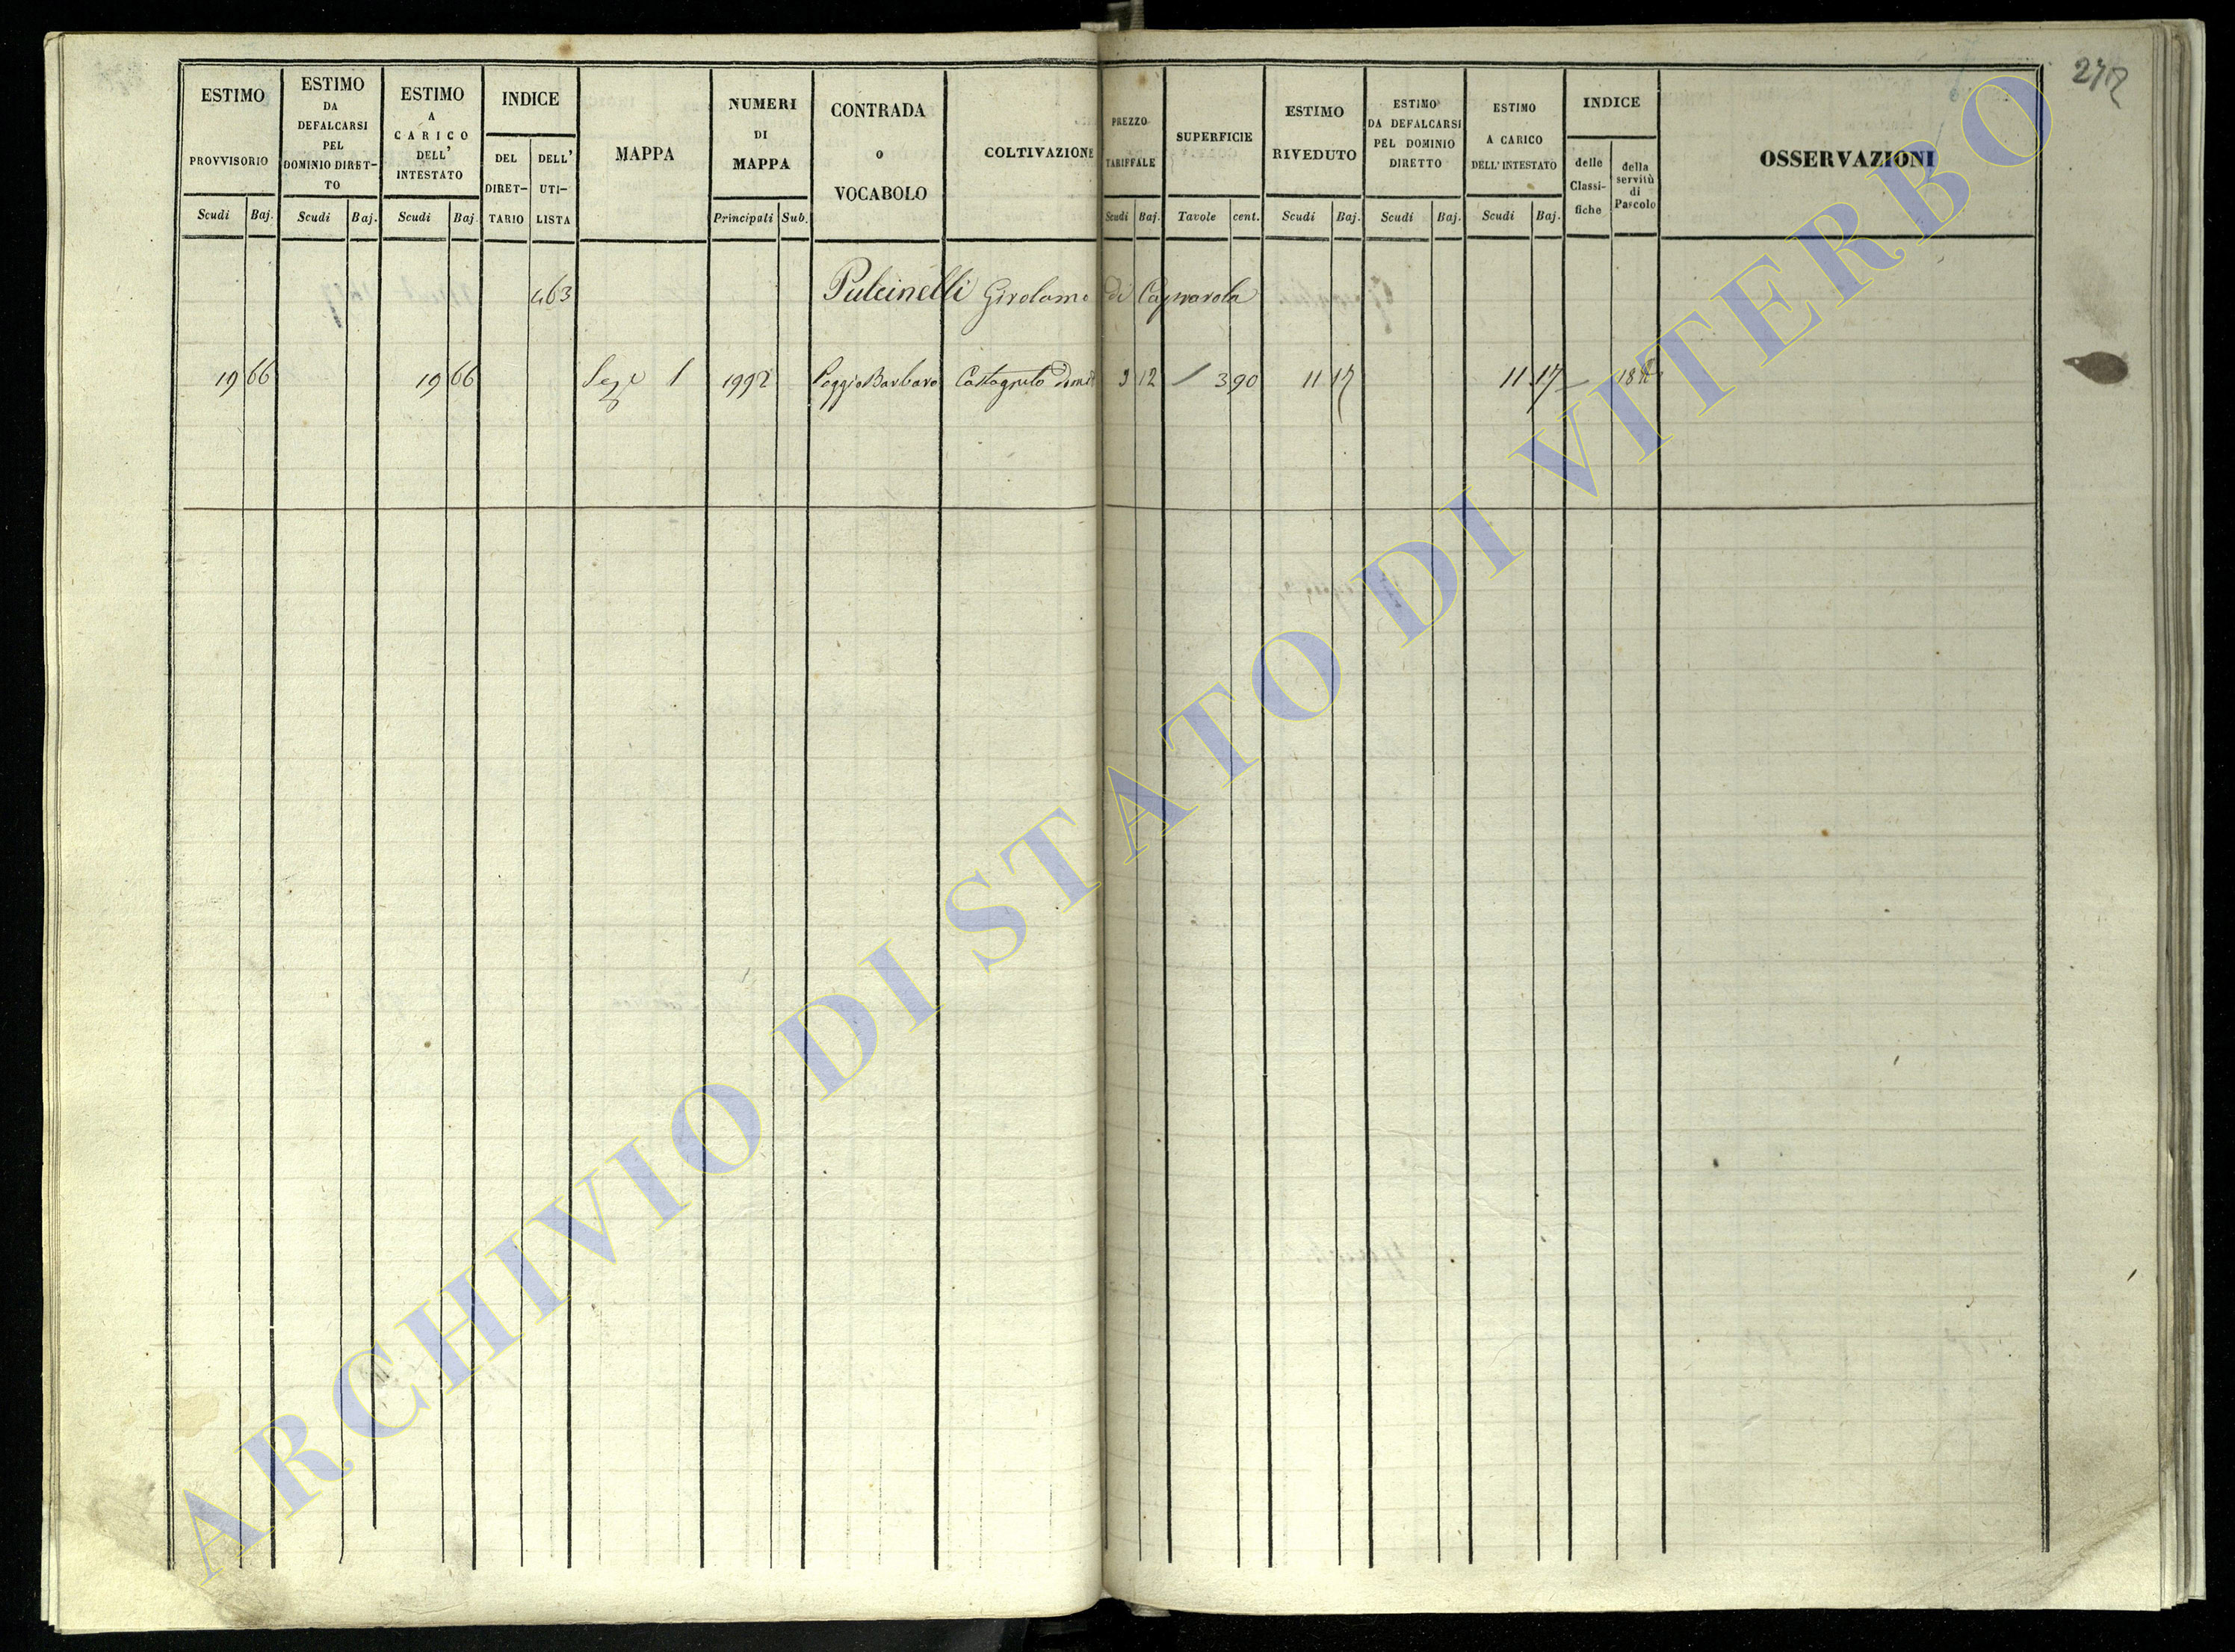 275
ESTIMO PROVVISORIO
Scudi Baj.
ESTIMO DA DEFALCARSI PEL DOMINIO DIRET-TO
Scudi Baj.
ESTIMO A CARICO DELL' INTESTATO
Scudi Baj.
INDICE
DEL DIRET-TARIO
DELL' UTI-LISTA
MAPPA
NUMERI DI MAPPA
Principali Sub.
CONTRADA O VOCABOLO
COLTIVAZIONE
PREZZO TARIFFALE
Scudi Baj.
SUPERFICIE
Tavole cent.
ESTIMO RIVEDUTO
Scudi Baj.
ESTIMO DA DEFALCARSI PEL DOMINIO DIRETTO
Scudi Baj.
ESTIMO A CARICO DELL' INTESTATO
Scudi Baj.
INDICE
delle Classi-fiche
della servitù di Pascolo
OSSERVAZIONI
463 Pulcinelli Girolamo di
19 66 19 66 Sez e 1 1992 Poggio Barbaro Castagneto 12 3 90 11 17 11 17
ARCHIVIO DI STATO DI VITERBO